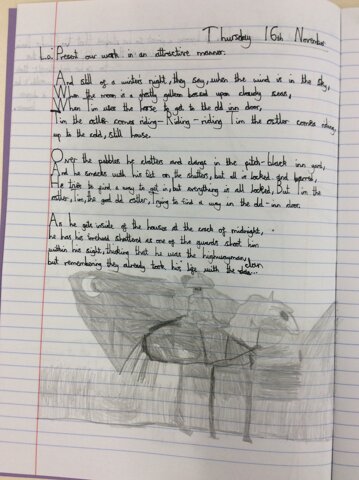 Thursday 16th November
La: Present our work in an attractive manner.
And still of a winters night, they say, when the wind is in the sky,
When the moon is a ghostly galleon tossed upon cloudy seas,
When I'm use the horse to get to the old inn door,
Tim the ostler comes riding-Riding-riding Tim the ostler comes riding,
up to the odd, still house.
Over the pabbles he shatters and clangs in the pitch-black inn yard,
And he smacks with his fist on the shutters, but all is locked and barred,
He tries to find a way to get in, but everything is all locked, But Tim the
ostler, Tim, the good old ostler, Trying to find a way in the old-inn door.
As he gets inside of the houses at the crack of midnight,
he has his forehead shattered as one of the guards shoot him
within his sight, thinking that he was the highwayman,
but remembering they already took his life with the